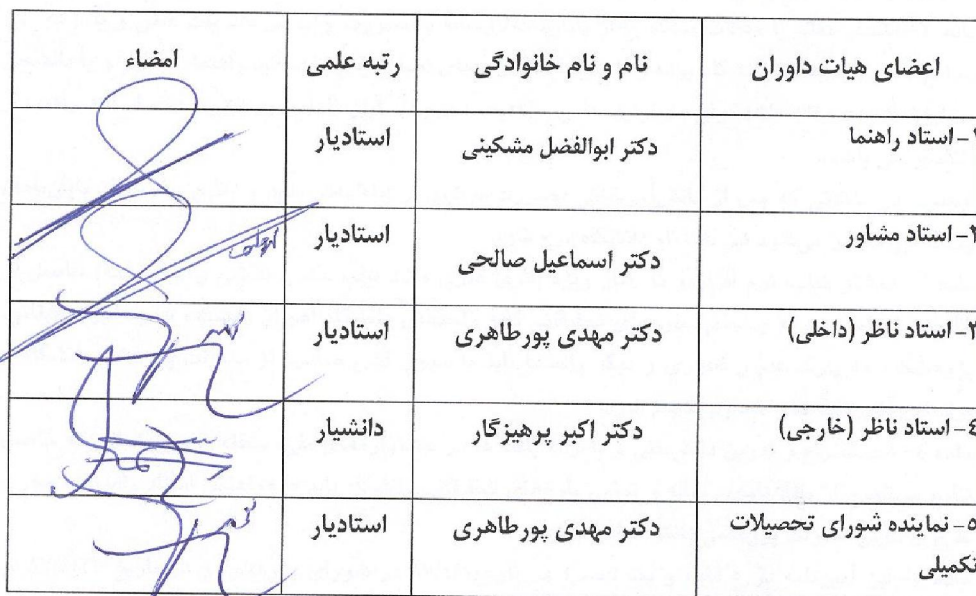 اعضای هیات داوران نام و نام خانوادگی رتبه علمی امضاء
۱- استاد راهنما دکتر ابوالفضل مشکینی استادیار
۲- استاد مشاور دکتر اسماعیل صالحی استادیار
۳- استاد ناظر (داخلی) دکتر مهدی پورطاهری استادیار
٤- استاد ناظر (خارجی) دکتر اکبر پرهیزگار دانشیار
٥- نماینده شورای تحصیلات دکتر مهدی پورطاهری استادیار
تکمیلی